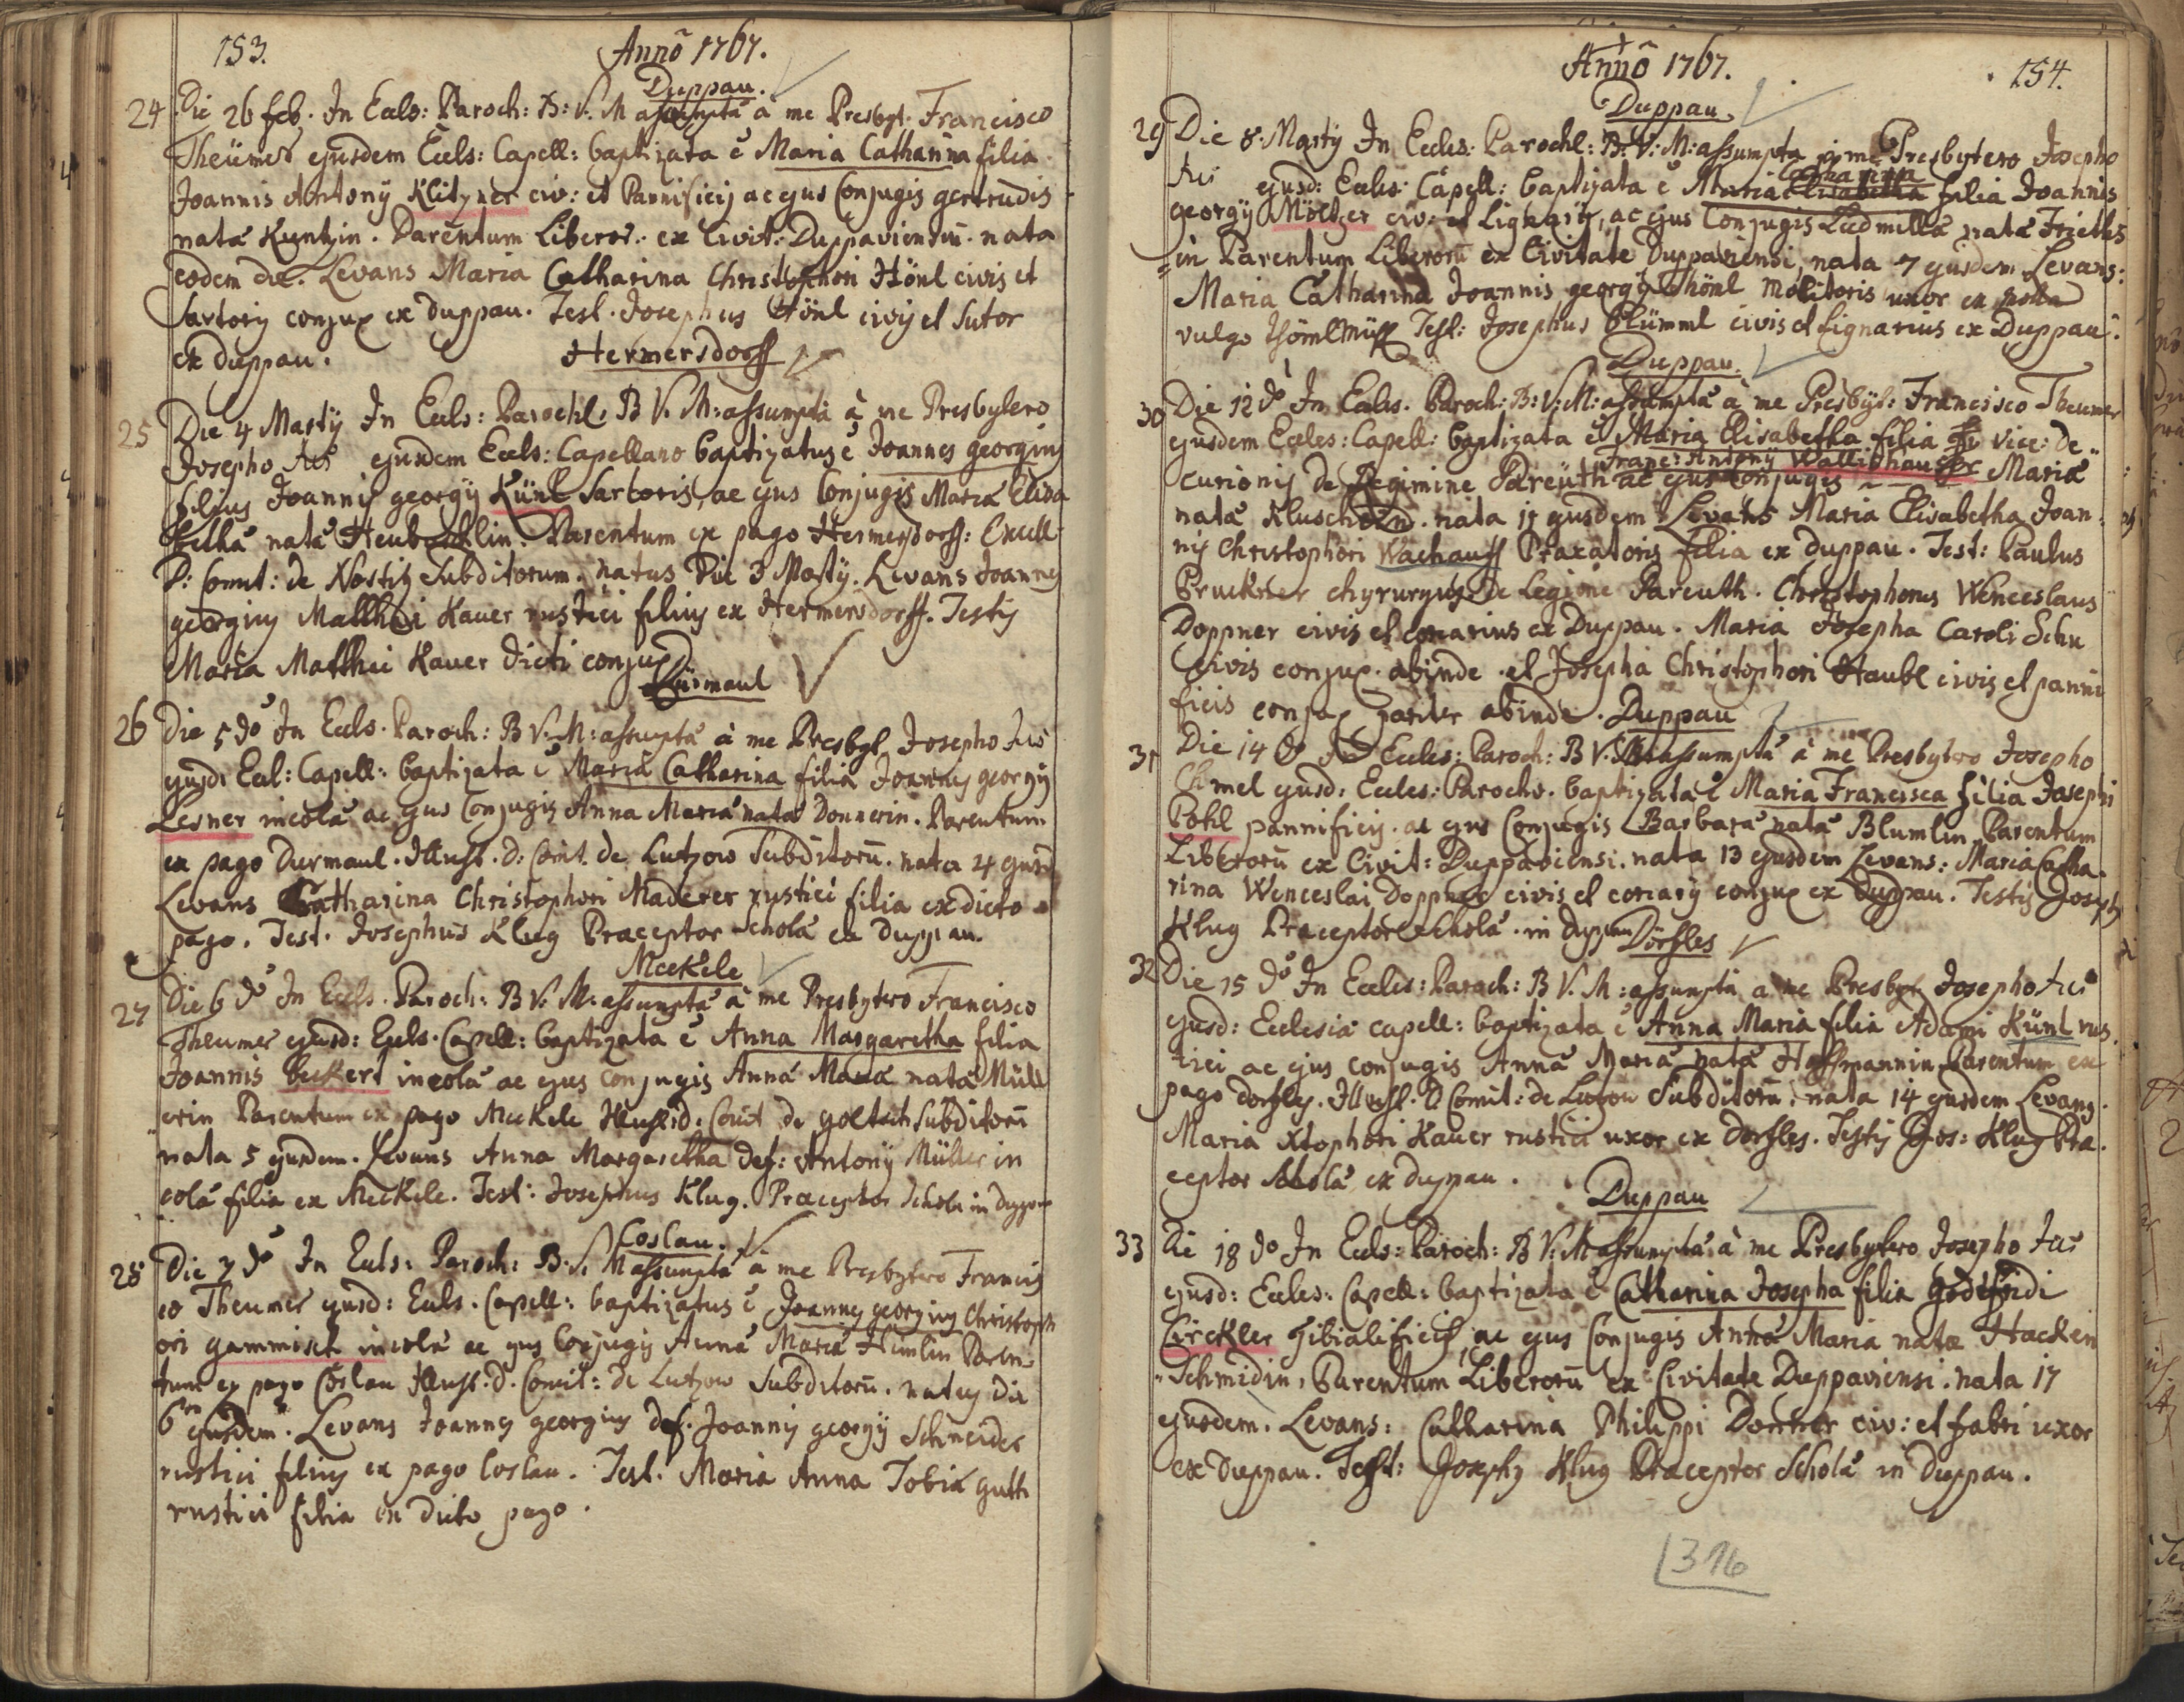 153.
Anno 1767.
Duppau.
24 Die 26 feb. In Eccls: Paroch: B: V. M assumpta à me Presbyt. Francisco
Theümer ejusdem Eccls: Capell: baptizata ẽ Maria Catharina filia
Joannis Antonÿ Klitzner civ: et Pannificis ac ejus Conjugis gertrudis
nata Kuntzin. Parentum Liberor: ex Civit: Duppaviensi. nata
eodem die. Levans Maria Catharina Christophori Hönl civis et
Sartoris conjux ex duppau. Test. Josephus Hönl civis et Sutor
ex duppau.
Hermersdorff
25 Die 4 Martÿ In Eccls: Parochl: B V. M: assumpta à me Presbytero
Josepho ejusdem Eccls: Capellano baptizatus ẽ Joannes georgius
filius Joannis georgÿ Künl Sartoris, ac ejus Conjugis Maria Elisa
betha nata. Parentum ex pago Hermersdorff: Excell
D: Comit: de Nostitz Subditorum. natus Die 3 Martÿ. Levans Joannes
georgius Matthei Kauer rustici filius ex Hermersdorff. Testis
Maria Matthei Kauer dicti conjux.
Dürmaul
26 Die 5 do In Eccls. Paroch: B V. M: assumpta à me Presbyt. Josepho
ejusd: Eccl: Capell: baptizata ẽ Maria Catharina filia Joannis georgÿ
Lesner incola ac ejus Conjugis Anna Maria nata Donnerin. Parentum
ex pago Durmaul. Illust. D: Comit. de Lutzow Subditorũ. nata 4 ejusd
Levans Catharina Christophori Maderer rustici filia ex dicto
pago. Test. Josephus Klug Præceptor Schola ex duppau.
Meckele
27 Die 6 do In Eccls. Paroch: B V. M: assumpta à me Presbytero Francisco
Theumer ejusd: Eccls. Capell: baptizata ẽ Anna Margaretha filia
Joannis beckert incola ac ejus conjugis Anna Maria nata Müll
erin Parentum ex pago Meckele Illust: d. Comit de goltsch Subditorũ
nata 5 ejusdem. Levans Anna Margaretha def: Antonÿ Müller in
cola filia ex Meckele. Test: Josephus Klug. Præceptor Schola in duppau
Coslau.
28 Die 7 do In Eccls: Paroch: B. V. M assumpta à me Presbytero Francis
co Theumer ejusd: Eccls. Capell: baptizatus ẽ Joannes georgius Christoph
ori gammisch incola ac ejus Conjugis Anna Maria Himlin Paren
tum ex pago Coslau Illust. d. Comit: de Lutzow Subditorũ. natus die
6ta ejusdem. Levans Joannes georgius def. Joannis georgÿ Schneider
rustici filius ex pago Coslau. Test. Maria Anna Tobia guth
rustici filia ex dicto pago.
Anno 1767.
154.
Duppau.
29 Die 8. Martÿ In Eccles: Parochl: B: V: M: assumpta à me Presbytero Josepho
Catharina
ejusd: Eccles: Capell: baptizata ẽ Maria Elisabetha filia Joannis
georgÿ Möltzer civ: et Lignarÿ, ac ejus Conjugis Ludmilla nata Frieths
in Parentum Liberorũ ex Civitate Duppaviensi, nata 7 ejusdem Levans:
Maria Catharina Joannis georgÿ Thöml Molitoris uxor ex mola
vulgo thömlmühl Test: Josephus blümml civis et Lignarius ex Duppau.
Duppau.
30 Die 12 do In Eccles. Paroch: B: V: M: assumpta à me Presbyt: Francisco Theumer
ejusdem Eccles: Capell: baptizata ẽ Maria Elisabetha filia vice: de
Franc: Antonÿ Wallishauser
curionis de Regimine Pareüth ac ejus Conjugis Maria
nata Kluschein. nata 11 ejusdem Levans Maria Elisabetha Joan
nis Christophori Wachauff Braxatoris filia ex duppau. Test: Paulus
Pruckner chyrurgus de Legione Pareuth. Christophorus Wenceslaus
Doppner civis et coriarius ex Duppau. Maria Josepha Caroli Schu
civis conjux abinde et Josepha Christophori Haubl civis et panni
ficis conjux pariter abinde.
Duppau
31 Die 14 do In Eccles: Paroch: B V. M: assumpta à me Presbytero Josepho
Chmel ejusd: Eccles: Parocho. baptizata ẽ Maria Francisca filia Josephi
Pohl pannificis. ac ejus Conjugis Barbara nata Blumlin, Parentum
Liberorũ ex Civit: Duppaviensi. nata 13 ejusdem Levans: Maria Catha
rina Wenceslai Doppner civis et coriarÿ conjux ex Duppau. Testis Joseph
Klug Præceptor Schola. in duppau
Dörfles
32 Die 15 do In Eccles: Paroch: B V. M: assumpta à me Presbyt Josepho
ejusd: Ecclesia capell: baptizata ẽ Anna Maria filia Adami Künl rus
tici ac ejus conjugis Anna Maria nata Hoffmannin, Parentum ex
pago dorfles. Illust. D Comit: de Lutzow Subditorũ. nata 14 ejusdem Levans.
Maria Xtophori Kauer rustici uxor ex dorfles. Testis Jos: Klug Præ
ceptor Schola ex duppau.
Duppau
33 Die 18 do In Eccls: Paroch: B V: M assumpta à me Presbytero Josepho
ejusd: Eccles: Capell: baptizata ẽ Catharina Josepha filia godefridi
Circkler Tibialificis, ac ejus Conjugis Anna Maria nata Hacken
Schmidin, Parentum Liberorũ ex Civitate Duppaviensi. nata 17
ejusdem. Levans: Catharina Philippi Donner civ: et fabri uxor
ex Duppau. Test: Josephus Klug Præceptor Schola in duppau.
316